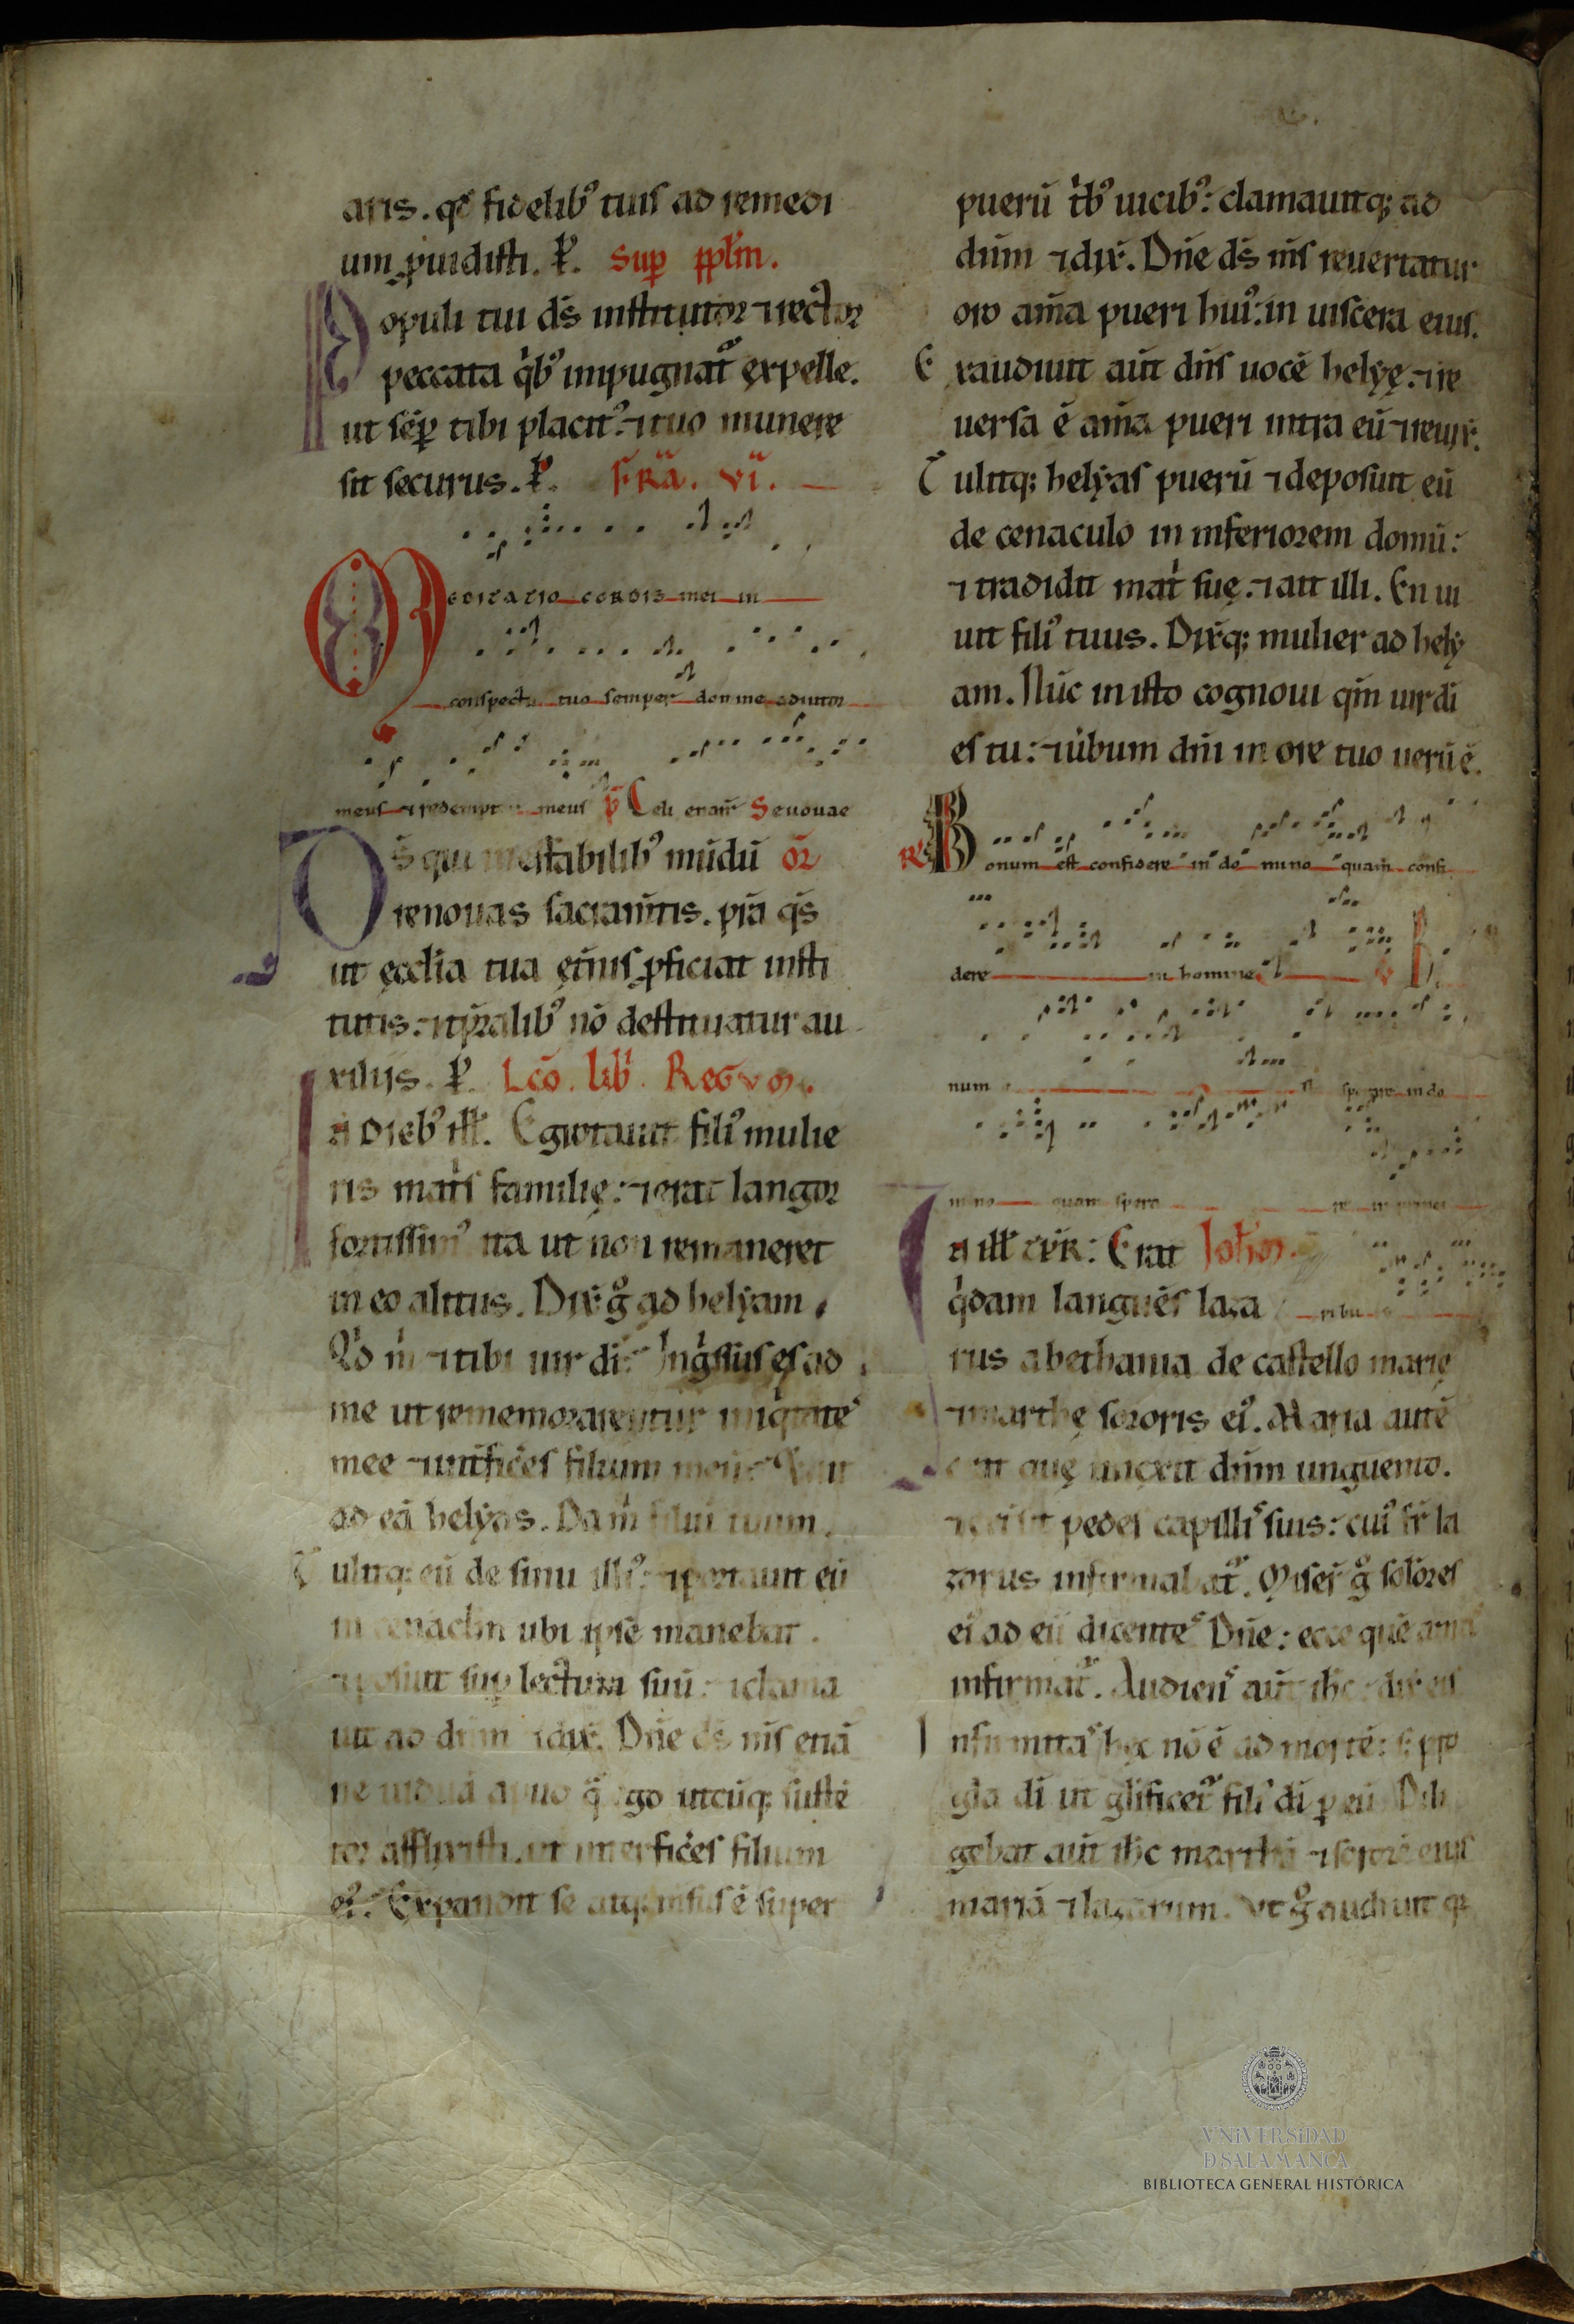 aris. qđ fidelib᷒ tuis ad remedi
um ꝓuidisti. P̶. Sup̱ pp̄lm̄.
Populi tui dš institutor ⁊ rector
peccata q̍b᷒ impugnat᷑ expelle.
ut sēp̱ tibi placit᷒ ⁊ tuo munere
sit securus. P̶. FR̄Ā. VI.
Meditatio cordis mei in
conspectu tuo semper domine adiutor
meus ⁊ redemptor meus p̄ Celi enarr̄ Seuouae
Ds̄ qui ineffabilib᷒ mūdū or̄
renouas sacram̄tis. p̄ra q̄s
ut ęcclia tua ęt̄nis ꝓficiat insti
tutis. ⁊ tp̄ralib᷒ nō destituatur au
xiliis. P̶. Lc̄o. lib̍. Regum.
In dieb᷒ ill̄. Egrotauit fili᷒ mulie
ris mat̍s familię. ⁊ erat langor
fortissim᷒ ita ut non remaneret
in eo alitus. Dix̄ g̊ ad helẏam.
Q̍d m̍ ⁊ tibi uir di. Ing̍ssus es ad
me ut rememorarentur iniq̍tate᷒
mee ⁊ int̄fic̄es filium meū
ad eā helẏas. Da m̍ filiū tuum.
Tulitq; eū de sinu illi᷒. ⁊ portauit eū
in cenaclm̄ ubi ipse manebat.
⁊ posuit sup̱ lectum suū. ⁊ clama
uit ad dn̄m ⁊ dix̄. Dn̄e ds̄ m̄s etiā
ne uiduā apud q̄ ego utcūq; sustē
tor afflixisti. ut interfic̄es filium
ei᷒. Expandit se atq; msus ē super
puerū t̍b᷒ uicib᷒: clamauitq; ad
dn̄m ⁊ dix̄. Dn̄e ds̄ m̄s reuertatur
oro am̄a pueri hui᷒. in uiscera eius.
Exaudiuit aūt dn̄s uocē helẏę. ⁊ re
uersa ē am̄a pueri intra eū ⁊ reuix̄.
Tulitq; helẏas puerū ⁊ deposuit eū
de cenaculo in inferiorem domū:
⁊ tradidit mat̍ suę. ⁊ ait illi. En ui
uit fili᷒ tuus. Dix̄q; mulier ad helẏ
am. Nūc in isto cognoui qm̄ uir di
es tu: ⁊ uerbum dn̄i in ore tuo uerū ē.
R̄ Bonum est confidere in domino quam confi
dere in homine V̄ Bo
num est sperare in do
mino quam sperare in princi
In ill̄ tp̄r̄: Erat Ioh̄em.
q̍dam languēs laza pibus
rus a bethania de castello marię
⁊ marthę sororis ei᷒. Maria autē
erat quę unxit dn̄m unguento.
⁊ tersit pedes capilli᷒ suis: cui᷒ fr̄ la
zarus infirmabat᷑. Miser̄ g̊ sorores
ei᷒ ad eū dicente᷒ Dn̄e: ecce quē ama᷒
infirmat᷑. Audien᷒ aūt ih̄c dix̄ eis
Infirmita᷒ hęc nō ē ad mortē: s; pro
gla di ut glificet᷑ fili᷒ di ꝑ eū Dili
gebat aūt ih̄c marthā ⁊ sororē eius
mariā ⁊ lazarum. Vt g̊ audiuit q̄
VNiVERSiDAD
D SALAMANCA
BIBLIOTECA GENERAL HISTÓRICA